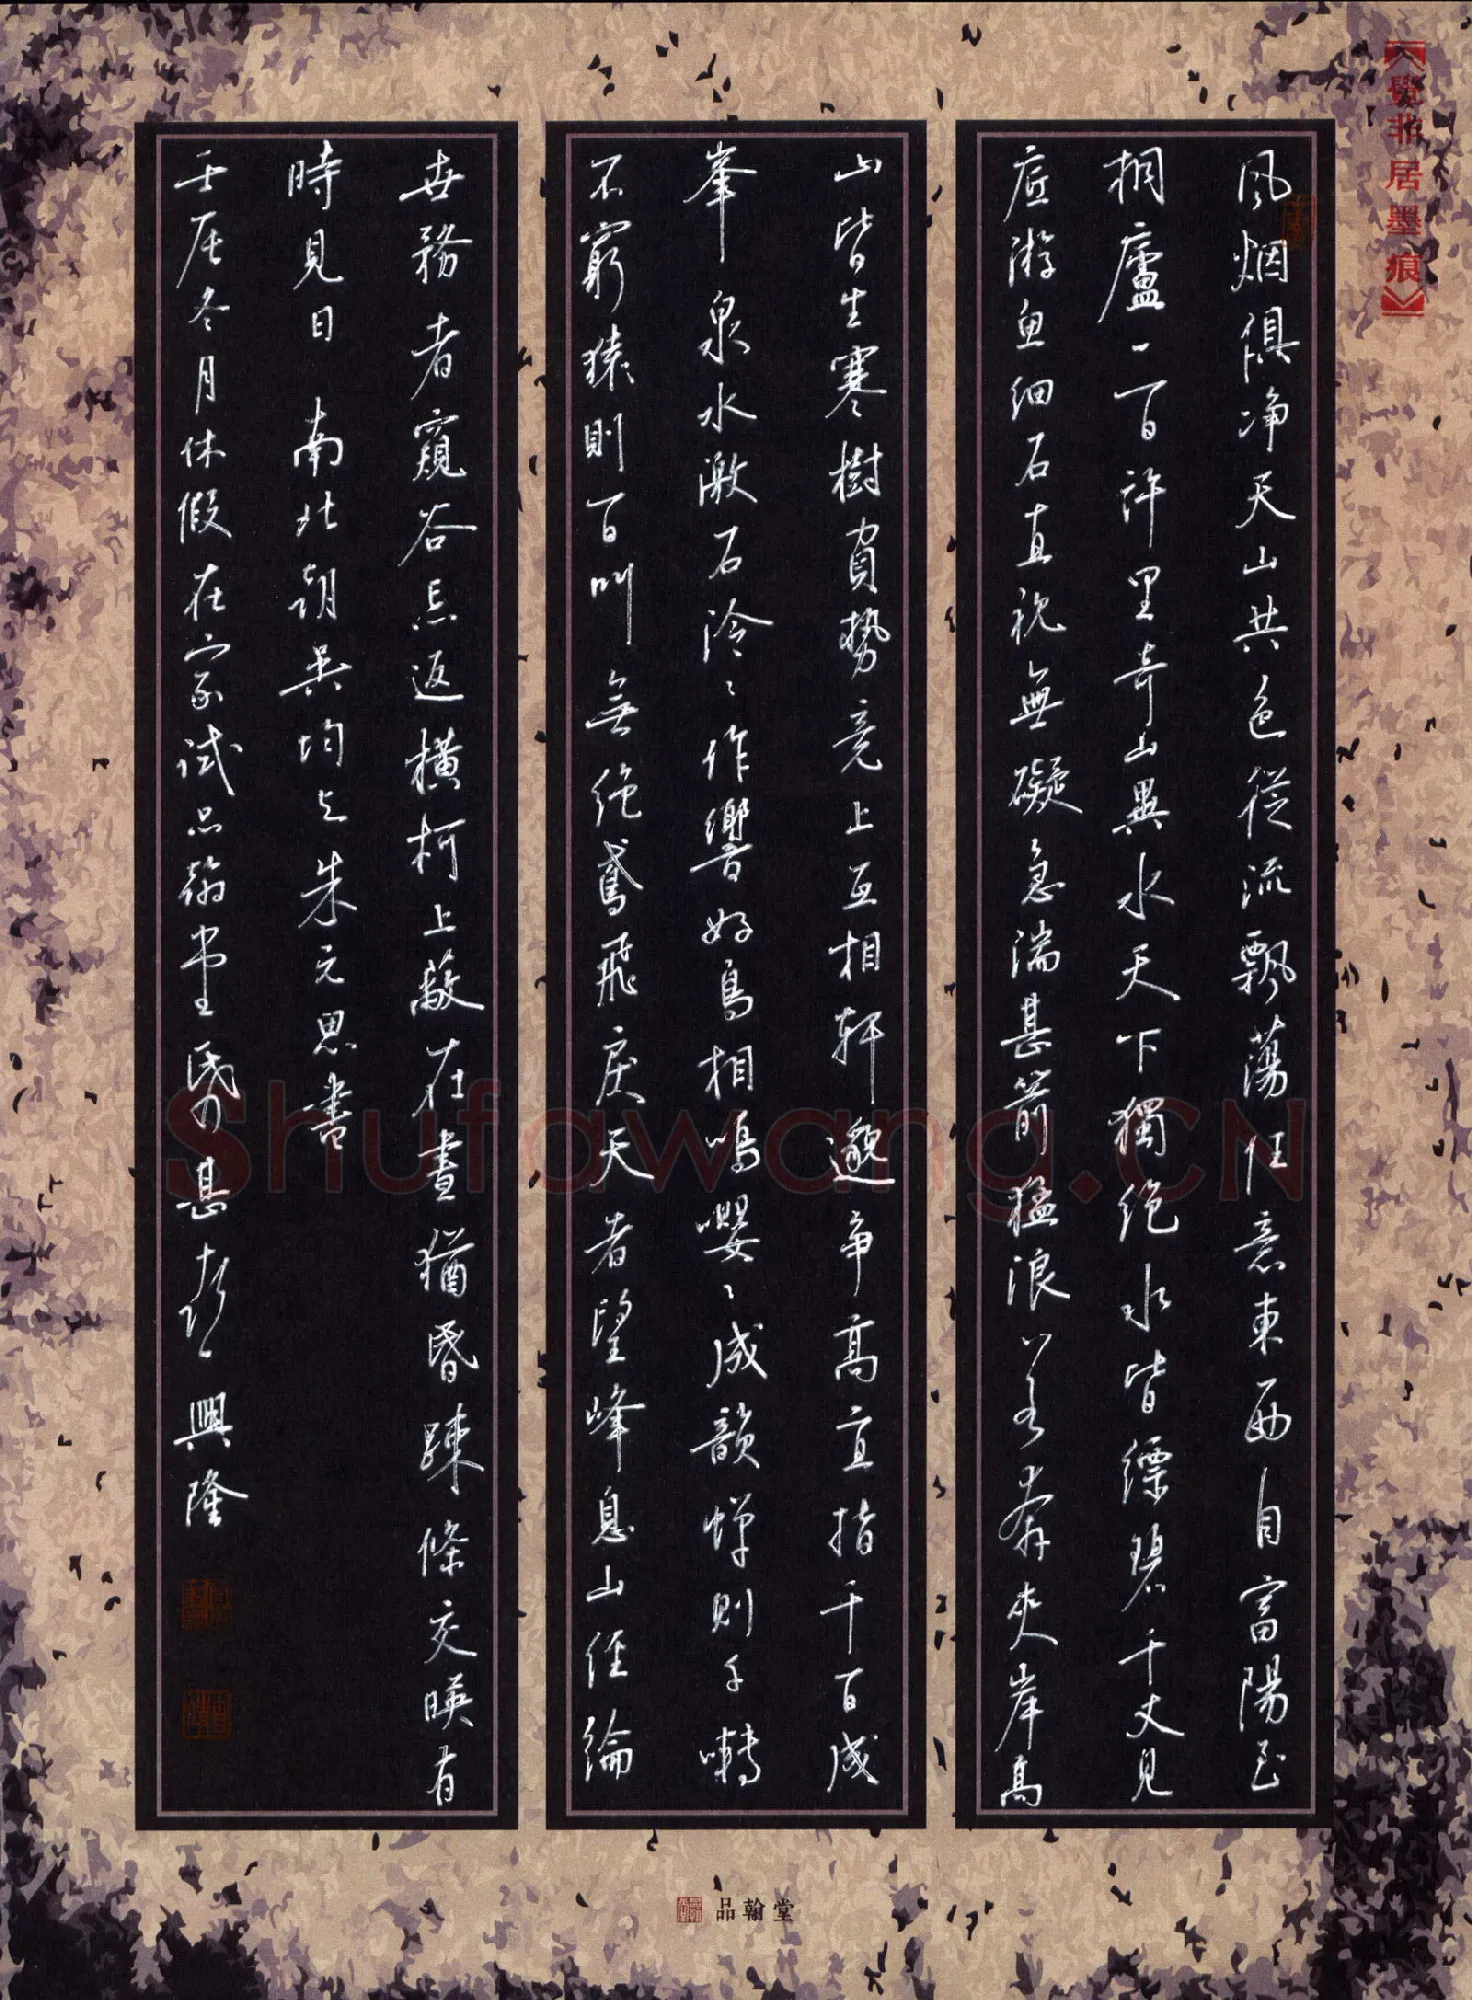 覺非居墨痕
風烟俱净天山共色從流飄蕩任意東西自富陽至
桐廬一百許里奇山異水天下獨绝水皆缥碧千丈見
底游鱼细石直視無礙急湍甚箭猛浪若奔夾岸高
山皆生寒樹負勢竞上互相軒邈爭高直指千百成
峯泉水激石泠泠作響好鳥相鳴嚶嚶成韻蝉則千囀
不窮猿則百叫無绝鳶飛戾天者望峰息山经綸
世務者窺谷忘返橫柯上蔽在晝猶昏疎條交暎有
時見日 南北朝吴均与朱元思書
壬辰冬月休假在家试品翰堂 甚 興隆
品翰堂
Shufawang.CN